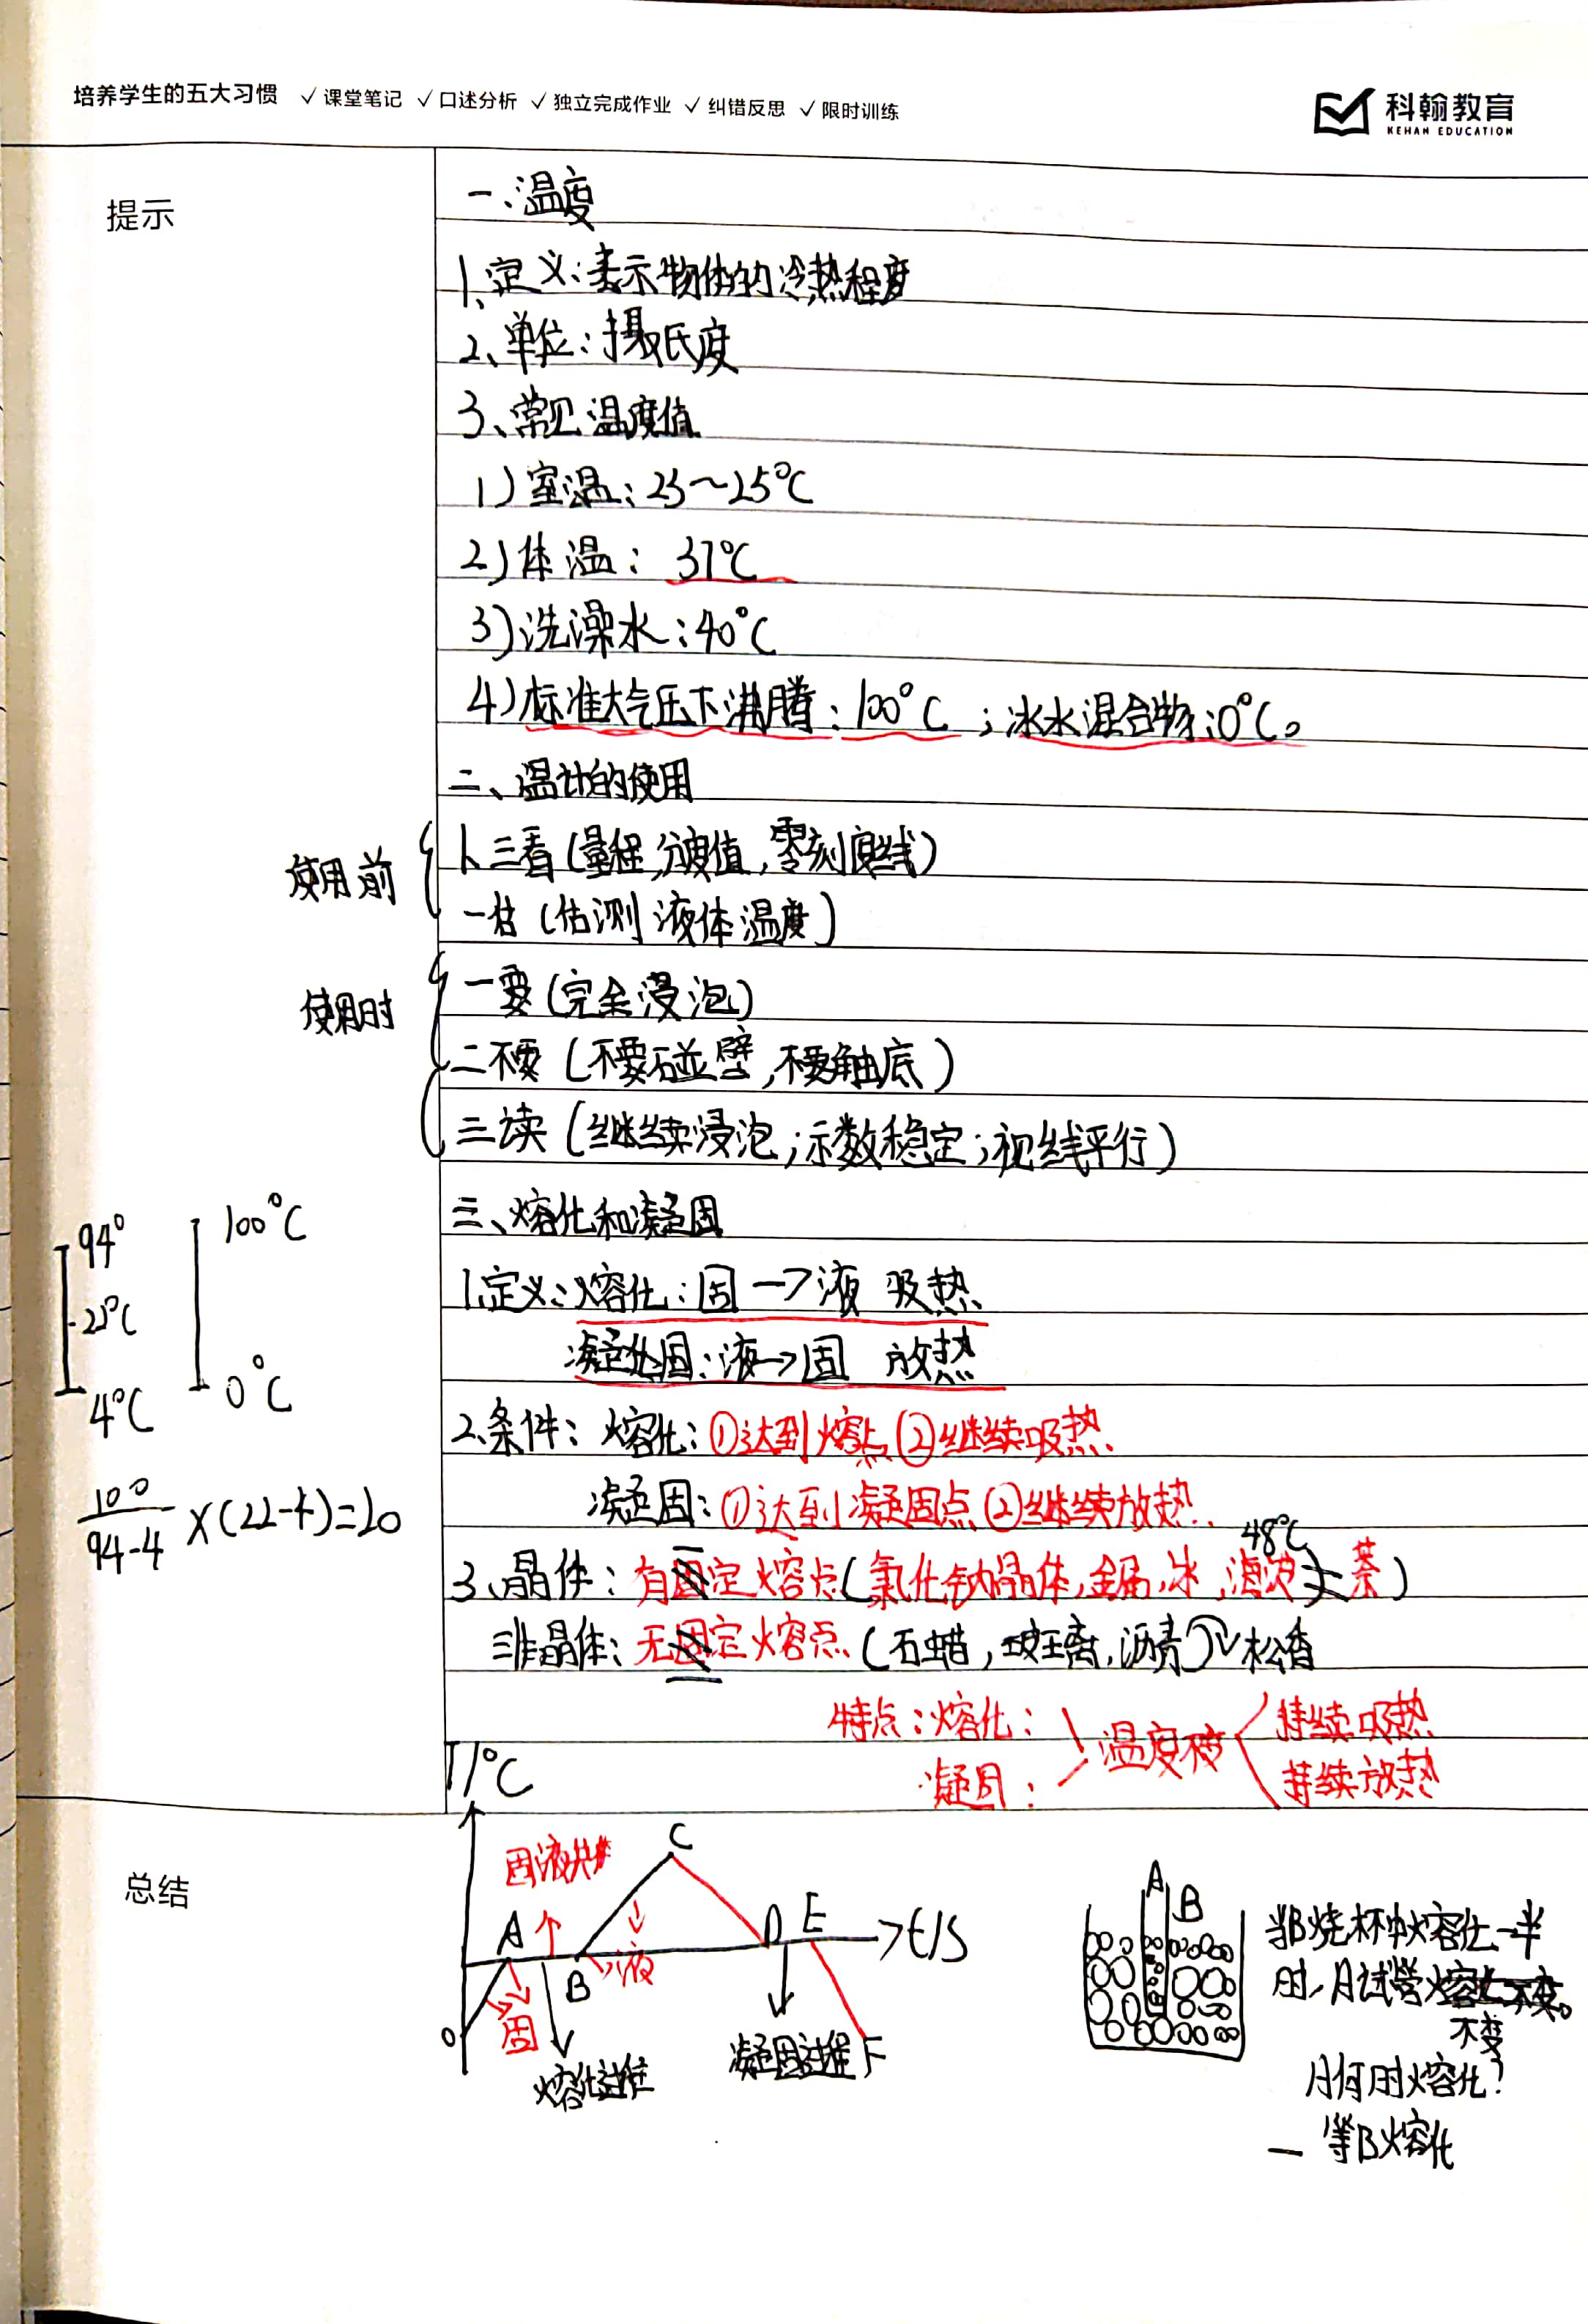 培养学生的五大习惯 ✓课堂笔记 ✓口述分析 ✓独立完成作业 ✓纠错反思 ✓限时训练
科翰教育
KEHAN EDUCATION
提示
一、温度
1、定义:表示物体的冷热程度
2、单位:摄氏度
3、常见温度值
1)室温:23~25℃
2)体温:37℃
3)洗澡水:40℃
4)标准大气压下沸腾:100℃;冰水混合物:0℃。
二、温计的使用
使用前
1、三看(量程,分度值,零刻度线)
一估(估测液体温度)
使用时
一要(完全浸泡)
二不要(不要碰壁,不要触底)
三读(继续浸泡;示数稳定;视线平行)
三、熔化和凝固
94° 100℃
22℃
4℃ 0℃
1.定义:熔化:固→液 吸热
凝固:液→固 放热
2.条件:熔化:①达到熔点②继续吸热
凝固:①达到凝固点②继续放热
100/(94-4)×(22-4)=20
48℃
3、晶体:有固定熔点(氯化钠晶体,金属,冰,海波,萘)
非晶体:无固定熔点(石蜡,玻璃,沥青)松香
特点:熔化:
凝固:
温度不变
持续吸热
持续放热
总结
T/℃
固液共
A
B
C
D
E
F
t/s
0
固
液
熔化过程
凝固过程
A
B
当B烧杯中熔化一半
时,A试管
不变
A何时熔化?
一等B熔化